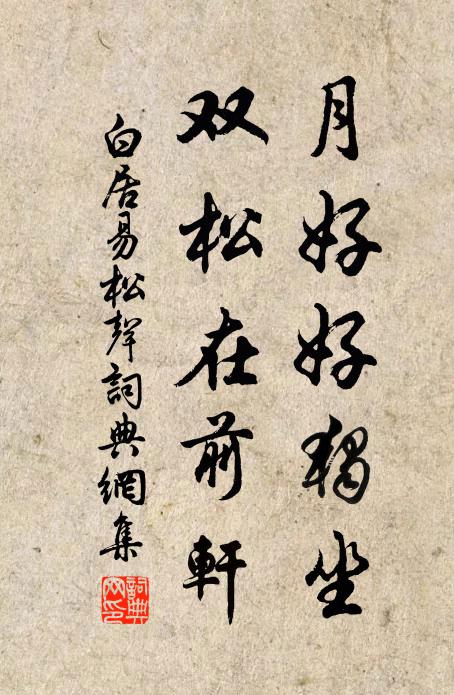 月好好獨坐
双松在前軒
白居易松聲詞典網集
詞典网印